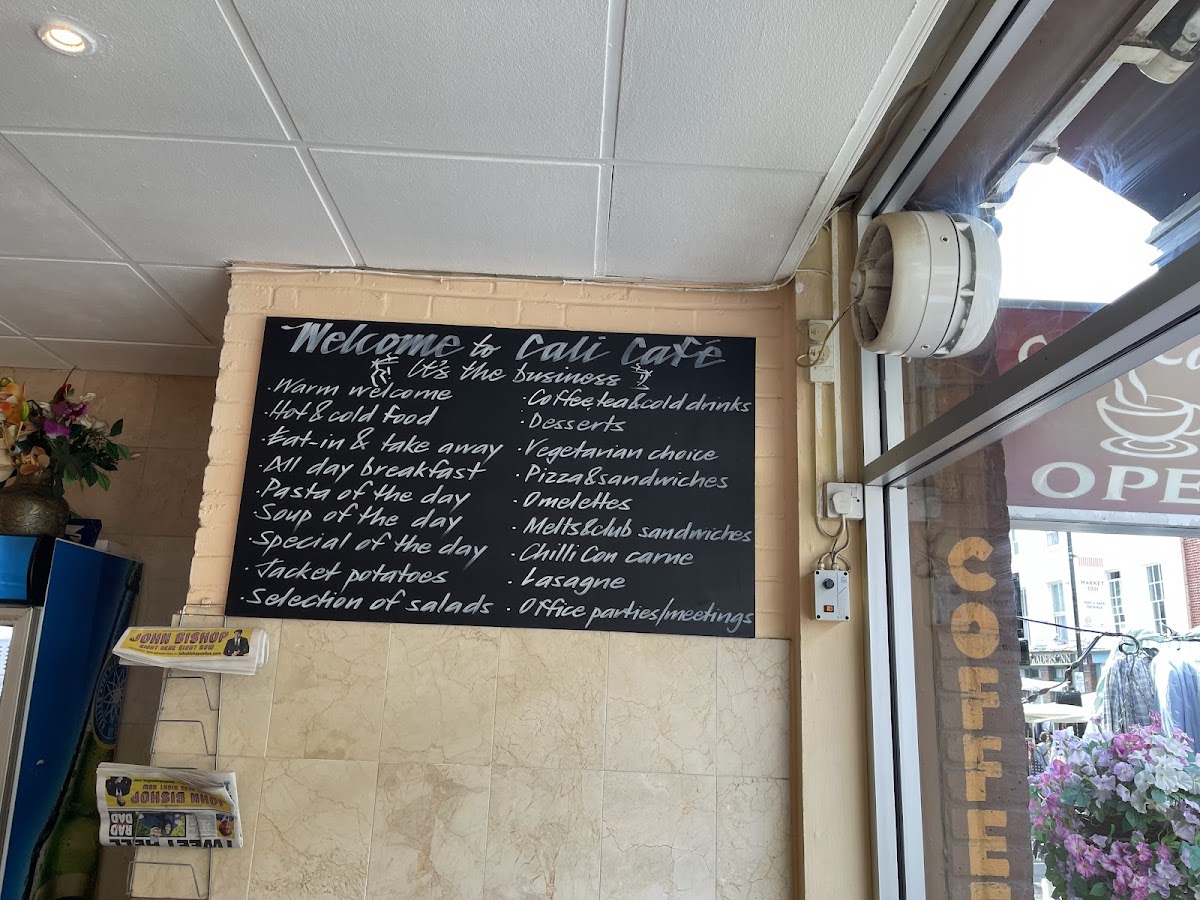 Welcome to Cali Café
It's the business
·Warm welcome
·Hot & cold food
·Eat-in & take away
·All day breakfast
·Pasta of the day
·Soup of the day
·Special of the day
·Jacket potatoes
·Selection of salads
·Coffee, tea & cold drinks
·Desserts
·Vegetarian choice
·Pizza & sandwiches
·Omelettes
·Melts & club sandwiches
·Chilli Con carne
·Lasagne
·Office parties/meetings
JOHN BISHOP
RIGHT HERE RIGHT NOW
JOHN BISHOP
RIGHT HERE RIGHT NOW
RAD
DAD
OPE
COFFEE
MARKET